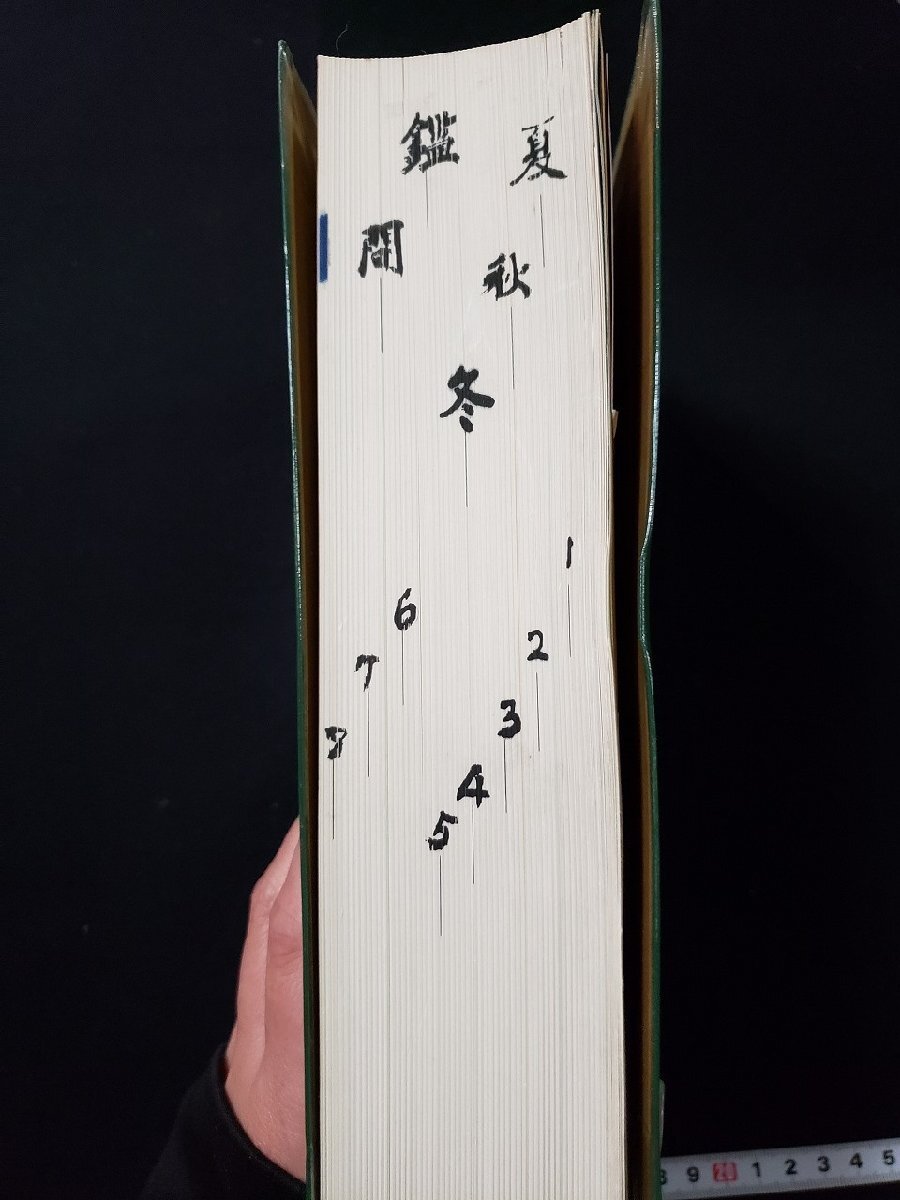 夏
鑑
秋
間
冬
1
2
3
4
5
6
7
8
9 20 1 2 3 4 5